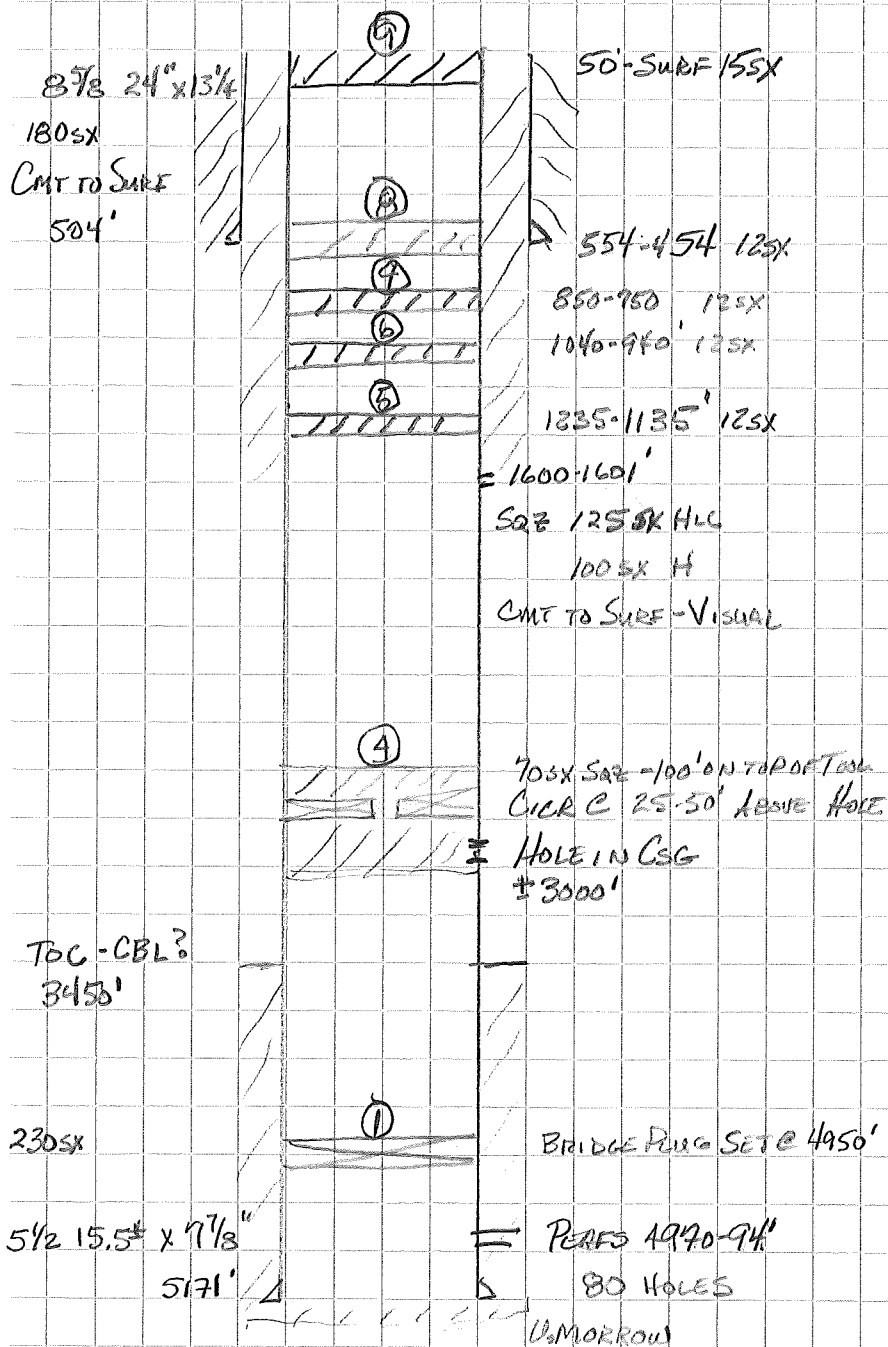 9
8 5/8 24" x 13 1/4
50'-SURF 15SX
180SX
CMT TO SURF
504'
8
554-454 12SX
7
850-750 12SX
6
1040-940' 12SX
5
1235-1135' 12SX
1600-1601'
SQZ 125 SX HLC
100 SX H
CMT TO SURF-VISUAL
4
70SX SQZ -100' ON TOP OF TOOL
CICR @ 25-50' ABOVE HOLE
HOLE IN CSG
± 3000'
TOC-CBL?
3450'
1
230SX
BRIDGE PLUG SET @ 4950'
5 1/2 15.5# x 7 7/8"
PERFS 4970-94'
5171'
80 HOLES
U.MORROW